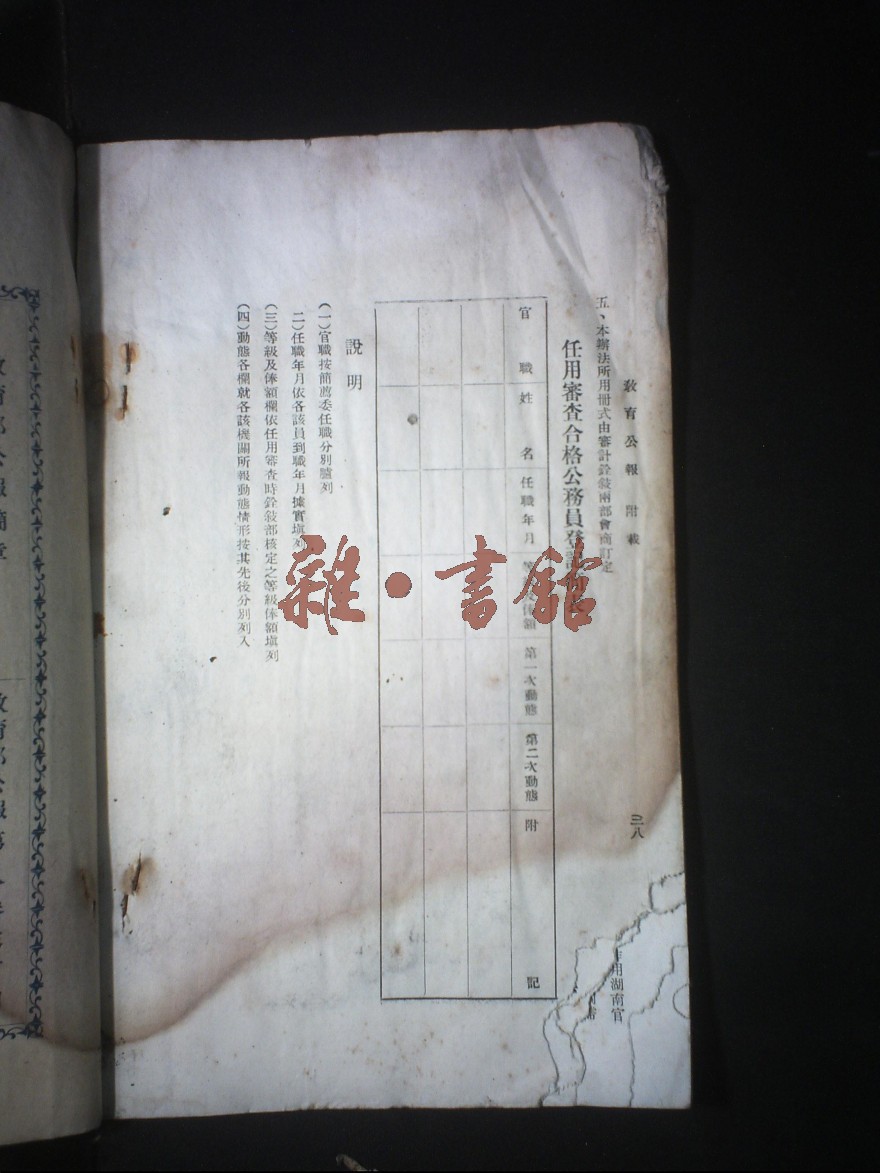 教育公報 附載
三八
五、本辦法所用冊式由審計銓敍兩部會商訂定
任用審查合格公務員登記
官職
姓名
任職年月
等
俸額
第一次動態
第二次動態
附記
說明
(一)官職按簡薦委任職分別臚列
(二)任職年月依各該員到職年月據實塡列
(三)等級及俸額欄依任用審查時銓敍部核定之等級俸額塡列
(四)動態各欄就各該機關所報動態情形按其先後分別列入
用湖南官
雜·書館
教育部公報簡章
教育部公報第